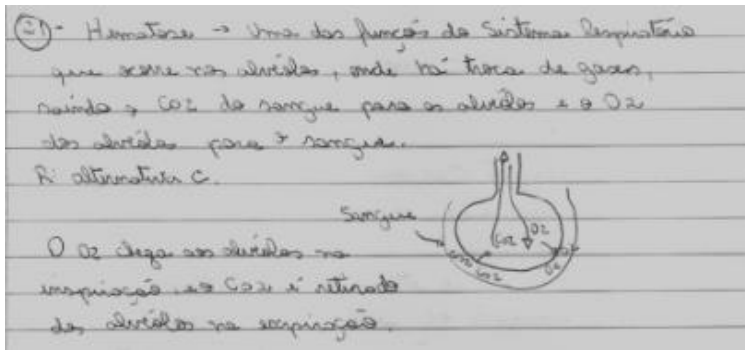 21 - Hematose → Uma das funções do Sistema Respiratório
que ocorre nos alvéolos, onde há troca de gases,
saindo o CO2 do sangue para os alvéolos e o O2
dos alvéolos para o sangue.
R: alternativa C.
Sangue
CO2 O2
CO2 O2
O O2 chega aos alvéolos na
inspiração e o CO2 é retirado
dos alvéolos na expiração.